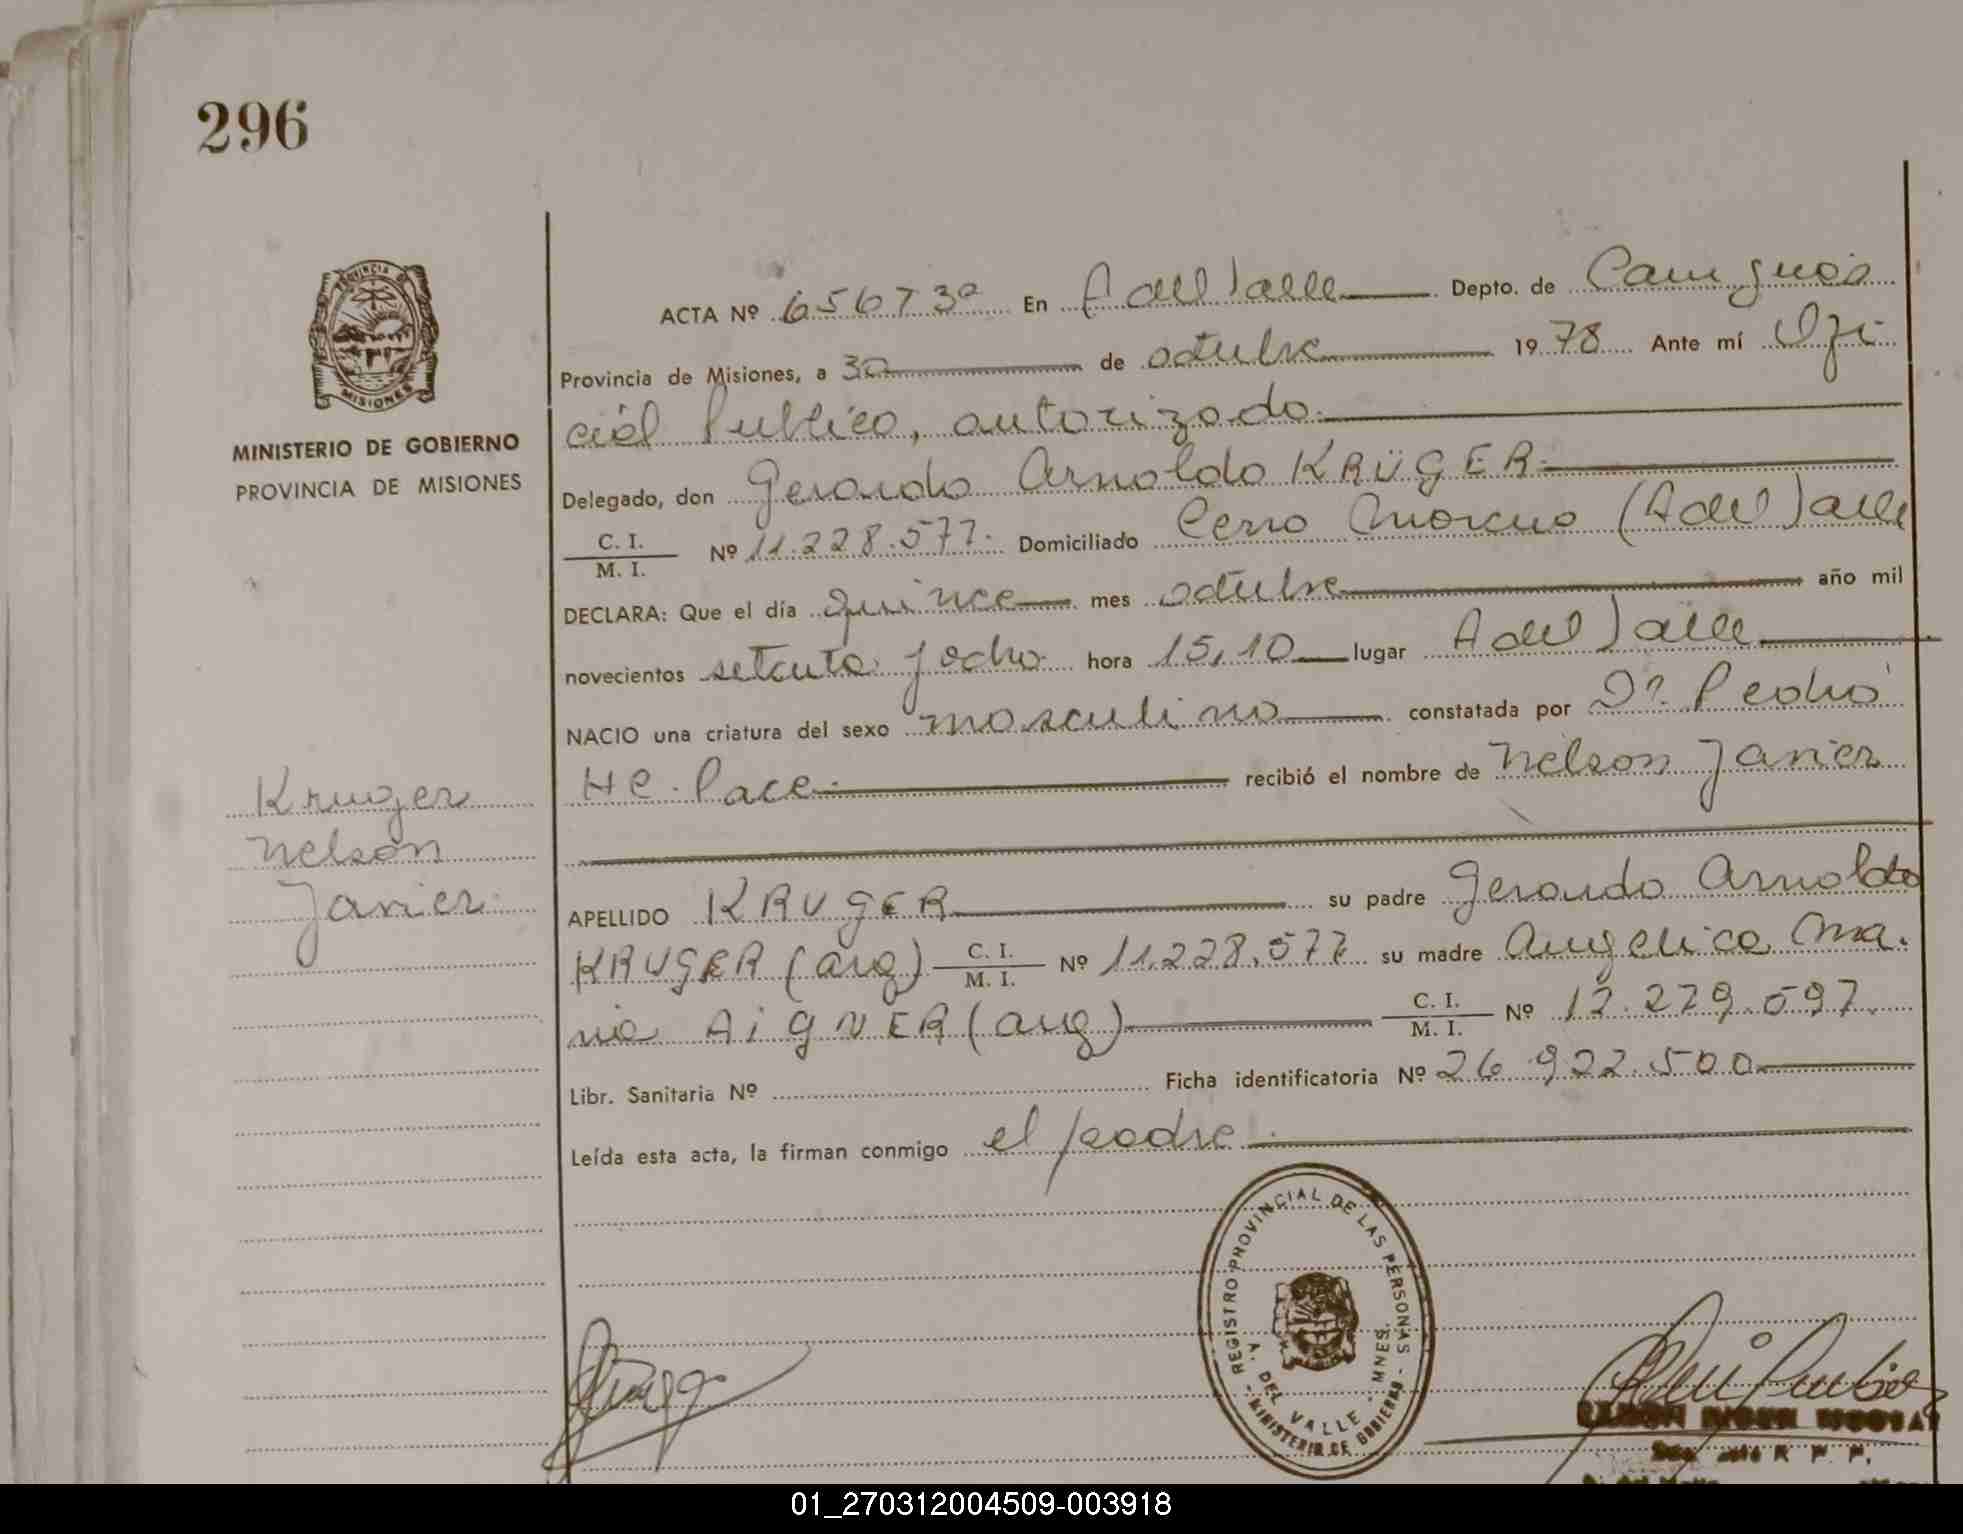 296
PROVINCIA DE
MISIONES
MINISTERIO DE GOBIERNO
PROVINCIA DE MISIONES
ACTA Nº 65673º En A del Valle Depto. de Cainguás
Provincia de Misiones, a 30 de octubre 1978 Ante mí Ofi
cial Publico, autorizado.
Delegado, don Gerardo Arnoldo KRÜGER
C. I.
M. I. Nº 11.228.577. Domiciliado Cerro Moreno (A del Valle
DECLARA: Que el día quince mes octubre año mil
novecientos setenta y ocho hora 15,10 lugar A del Valle
NACIO una criatura del sexo masculino constatada por Dr. Pedro
HC. Pace. recibió el nombre de Nélson Javier
Kruger
Nelson
Javier.
APELLIDO KRUGER su padre Gerardo Arnoldo
KRUGER (arg) C. I.
M. I. Nº 11.228.577 su madre Angelica Ma.
ria AIGNER (arg) C. I.
M. I. Nº 12.279.597.
Libr. Sanitaria Nº Ficha identificatoria Nº 26.922.500
Leída esta acta, la firman conmigo el padre.
REGISTRO PROVINCIAL DE LAS PERSONAS
A. DEL VALLE - MNES.
- MINISTERIO DE GOBIERNO -
01_270312004509-003918